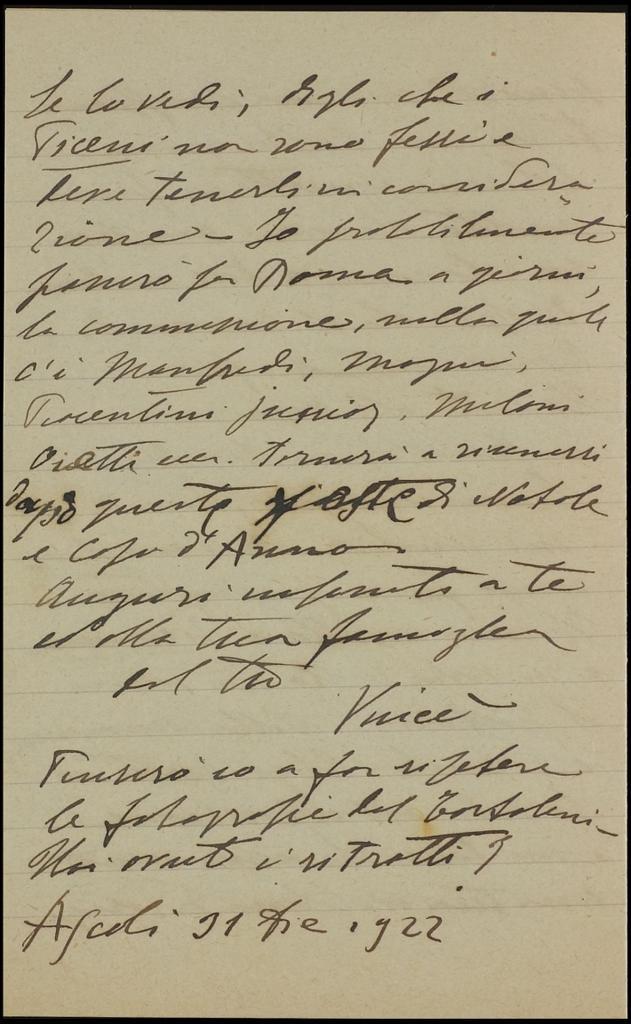 Se lo vedi, digli che i
Piceni non sono fessi e
deve tenerli in considera
zione – Io probabilmente
passerò per Roma a giorni,
la commissione, nella quale
c'è Manfredi, Magni,
Piacentini junior, Meloni
Ojetti ecc. tornerà a riunirsi
dopo queste feste di Natale
e Capo d'Anno
Auguri infiniti a te
ed alla tua famiglia
dal tuo
Vincè
Penserò io a far ripetere
le fotografie del
Hai avuti i ritratti?
Ascoli 31 Dic. 1922